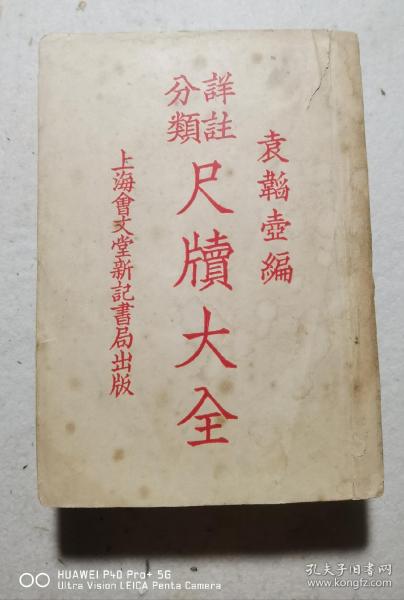 袁韜壺編
詳註
分類
尺牘大全
上海會文堂新記書局出版
HUAWEI P40 Pro+ 5G
Ultra Vision LEICA Penta Camera
孔夫子旧书网
www.kongfz.com